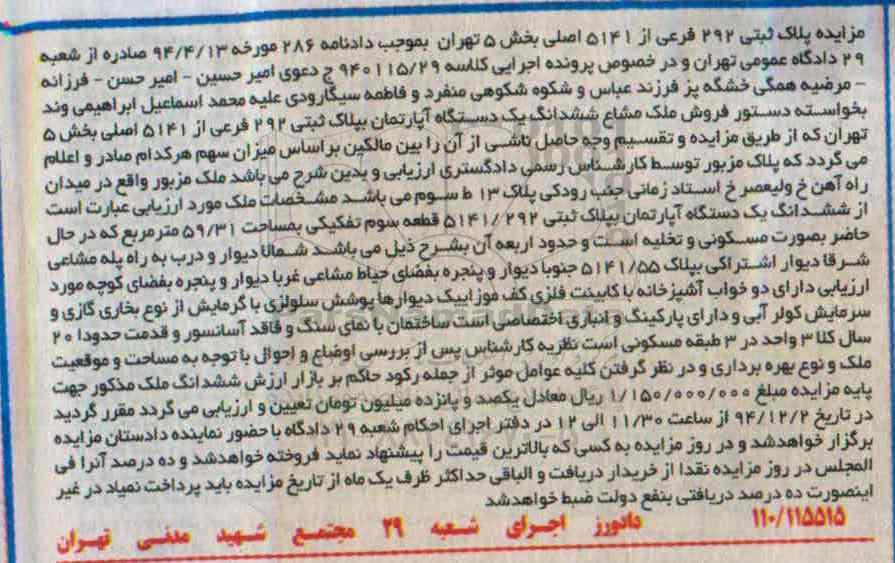 مزایده پلاک ثبتی ۲۹۲ فرعی از ۵۱۴۱ اصلی بخش ۵ تهران بموجب دادنامه ۲۸۶ مورخه ۹۴/۴/۱۳ صادره از شعبه
۲۹ دادگاه عمومی تهران و در خصوص پرونده اجرایی کلاسه ۹۴۰۱۱۵/۲۹ ج دعوی امیر حسین - امیر حسن - فرزانه
- مرضیه همگی خشگه پز فرزند عباس و شکوه شکوهی منفرد و فاطمه سیگارودی علیه محمد اسماعیل ابراهیمی وند
بخواسته دستور فروش ملک مشاع ششدانگ یک دستگاه آپارتمان بپلاک ثبتی ۲۹۲ فرعی از ۵۱۴۱ اصلی بخش ۵
تهران که از طریق مزایده و تقسیم وجه حاصل ناشی از آن را بین مالکین بر اساس میزان سهم هرکدام صادر و اعلام
می گردد که پلاک مزبور توسط کارشناس رسمی دادگستری ارزیابی و بدین شرح می باشد ملک مزبور واقع در میدان
راه آهن خ ولیعصر خ استاد زمانی جنب رودکی پلاک ۱۳ ط سوم می باشد مشخصات ملک مورد ارزیابی عبارت است
از ششدانگ یک دستگاه آپارتمان بپلاک ثبتی ۵۱۴۱/۲۹۲ قطعه سوم تفکیکی بمساحت ۵۹/۳۱ مترمربع که در حال
حاضر بصورت مسکونی و تخلیه است و حدود اربعه آن بشرح ذیل می باشد شمالا دیوار و درب به راه پله مشاعی
شرقا دیوار اشتراکی بپلاک ۵۱۴۱/۵۵ جنوبا دیوار و پنجره بفضای حیاط مشاعی غربا دیوار و پنجره بفضای کوچه مورد
ارزیابی دارای دو خواب آشپزخانه با کابینت فلزی کف موزاییک دیوارها پوشش سلولزی با گرمایش از نوع بخاری گازی و
سرمایش کولر آبی و دارای پارکینگ و انباری اختصاصی است ساختمان با نمای سنگ و فاقد آسانسور و قدمت حدودا ۲۰
سال کلا ۳ واحد در ۳ طبقه مسکونی است نظریه کارشناس پس از بررسی اوضاع و احوال با توجه به مساحت و موقعیت
ملک و نوع بهره برداری و در نظر گرفتن کلیه عوامل موثر از جمله رکود حاکم بر بازار ارزش ششدانگ ملک مذکور جهت
پایه مزایده مبلغ ۱/۱۵۰/۰۰۰/۰۰۰ ریال معادل یکصد و پانزده میلیون تومان تعیین و ارزیابی می گردد مقرر گردید
در تاریخ ۹۴/۱۲/۲ از ساعت ۱۱/۳۰ الی ۱۲ در دفتر اجرای احکام شعبه ۲۹ دادگاه با حضور نماینده دادستان مزایده
برگزار خواهدشد و در روز مزایده به کسی که بالاترین قیمت را پیشنهاد نماید فروخته خواهدشد و ده درصد آنرا فی
المجلس در روز مزایده نقدا از خریدار دریافت و الباقی حداکثر ظرف یک ماه از تاریخ مزایده باید پرداخت نمیاد در غیر
اینصورت ده درصد دریافتی بنفع دولت ضبط خواهدشد
۱۱۰/۱۱۵۵۱۵ دادورز اجرای شعبه ۲۹ مجتمع شهید مدنی تهران